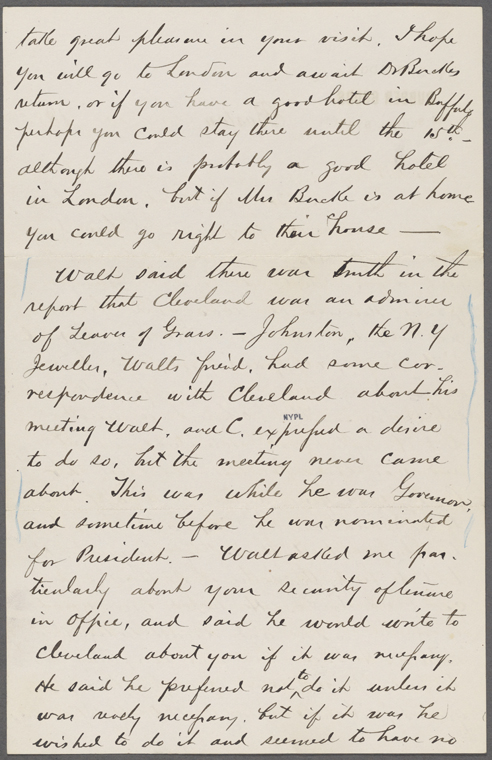 take great pleasure in your visit. I hope
you will go to London and await Dr Buckes
return, or if you have a good hotel in Buffalo
perhaps you could stay there until the 15th –
although there is probably a good hotel
in London, but if Mrs Bucke is at home
you could go right to their house —
Walt said there was truth in the
report that Cleveland was an admirer
of Leaves of Grass. – Johnston, the N. Y
Jeweller, Walts friend, had some cor-
respondence with Cleveland about his
NYPL
meeting Walt, and C. expressed a desire
to do so, but the meeting never came
about. This was while he was Governor,
and sometime before he was nominated
for President. – Walt asked me par-
ticularly about your security of tenure
in office, and said he would write to
Cleveland about you if it was necessary.
He said he preferred not to do it unless it
was really necessary. but if it was he
wished to do it and seemed to have no